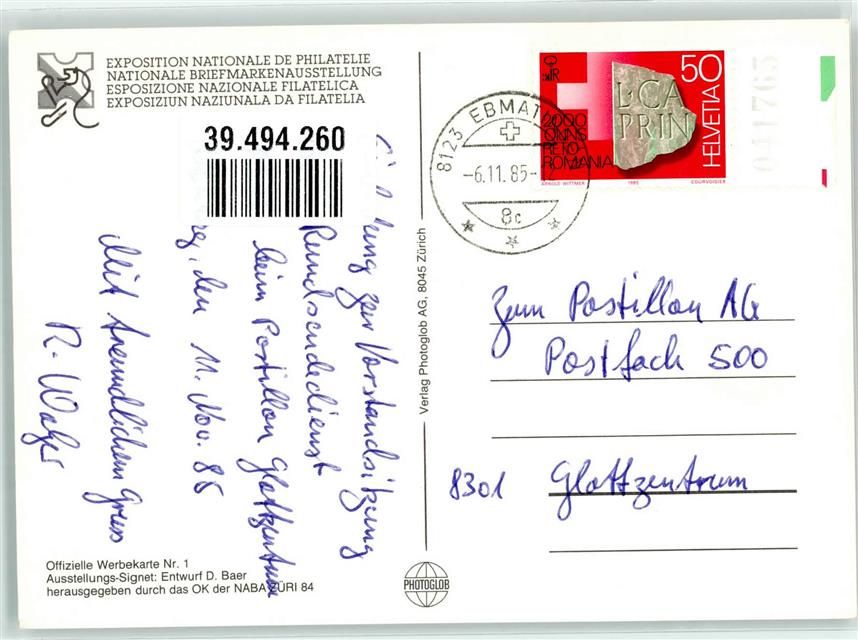 EXPOSITION NATIONALE DE PHILATELIE
NATIONALE BRIEFMARKENAUSSTELLUNG
ESPOSIZIONE NAZIONALE FILATELICA
EXPOSIZIUN NAZIUNALA DA FILATELIA
39.494.260
zur Vorstandsitzung
Rundsendedienst
beim Postillon Glattzentrum
, den 11. Nov. 85
Mit freundlichem Gruss
R. Walser
Offizielle Werbekarte Nr. 1
Ausstellungs-Signet: Entwurf D. Baer
herausgegeben durch das OK der NABA ZÜRI 84
Verlag Photoglob AG, 8045 Zürich
PHOTOGLOB
8123 EBMAT
-6.11.85-
8c
2000
ONNS
RETO-
ROMANIA
L·CA
PRIN
50
HELVETIA
ARNOLD WITTMER 1985 COURVOISIER
041765
Zum Postillon AG
Postfach 500
8301 Glattzentrum